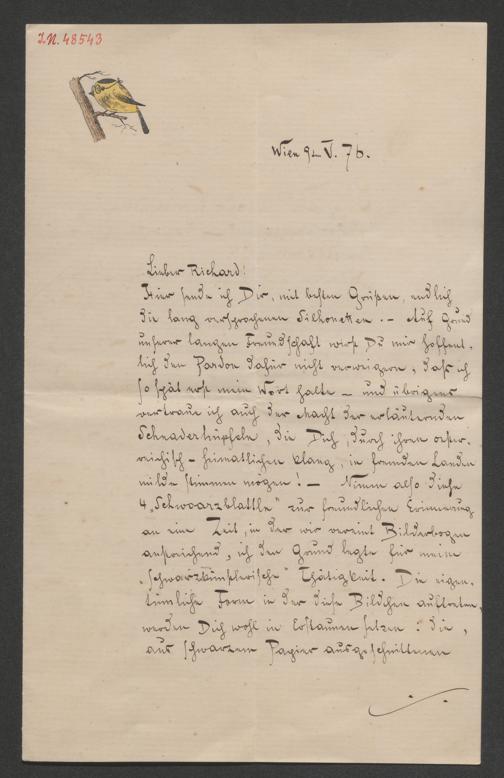 I.N. 48543
Wien 9/V. 76.
Lieber Richard!
Hier sende ich Dir, mit besten Grüßen, endlich
die lang versprochenen Silhouetten. – Auf Grund
unserer langen Freundschaft wirst Du mir hoffent-
lich den Pardon dafür nicht verweigern, daß ich
so spät erst mein Wort halte – und übrigens
vertraue ich auch der Macht der erläuternden
Schnaderhüpfeln, die Dich, durch ihren oester-
reichisch-heimatlichen Klang, in fremden Landen
milde stimmen mögen! – Nimm also diese
4 „Schwoarzblattln" zur freundlichen Erinnerung
an eine Zeit, in der wir vereint Bilderbogen
anstreichend, ich den Grund legte für meine
„schwarzkünstlerische" Thätigkeit. Die eigen-
tümliche Form in der diese Bildchen auftreten,
werden Dich wohl in Erstaunen setzen: die,
aus schwarzem Papier ausgeschnittenen